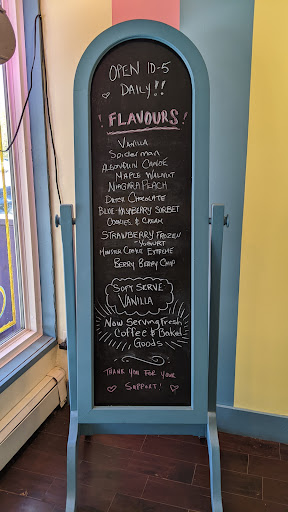 OPEN 10-5
DAILY!!
! FLAVOURS !
VANILLA
SPIDERMAN
ALGONQUIN CANOE
MAPLE WALNUT
NIAGARA PEACH
DUTCH CHOCOLATE
BLUE-RASPBERRY SORBET
COOKIES & CREAM
STRAWBERRY FROZEN
-YOGURT
MONSTER COOKIE EXTREME
BERRY BERRY CHIP
SOFT SERVE
VANILLA
NOW SERVING FRESH
COFFEE & BAKED
GOODS
THANK YOU FOR YOUR
SUPPORT!